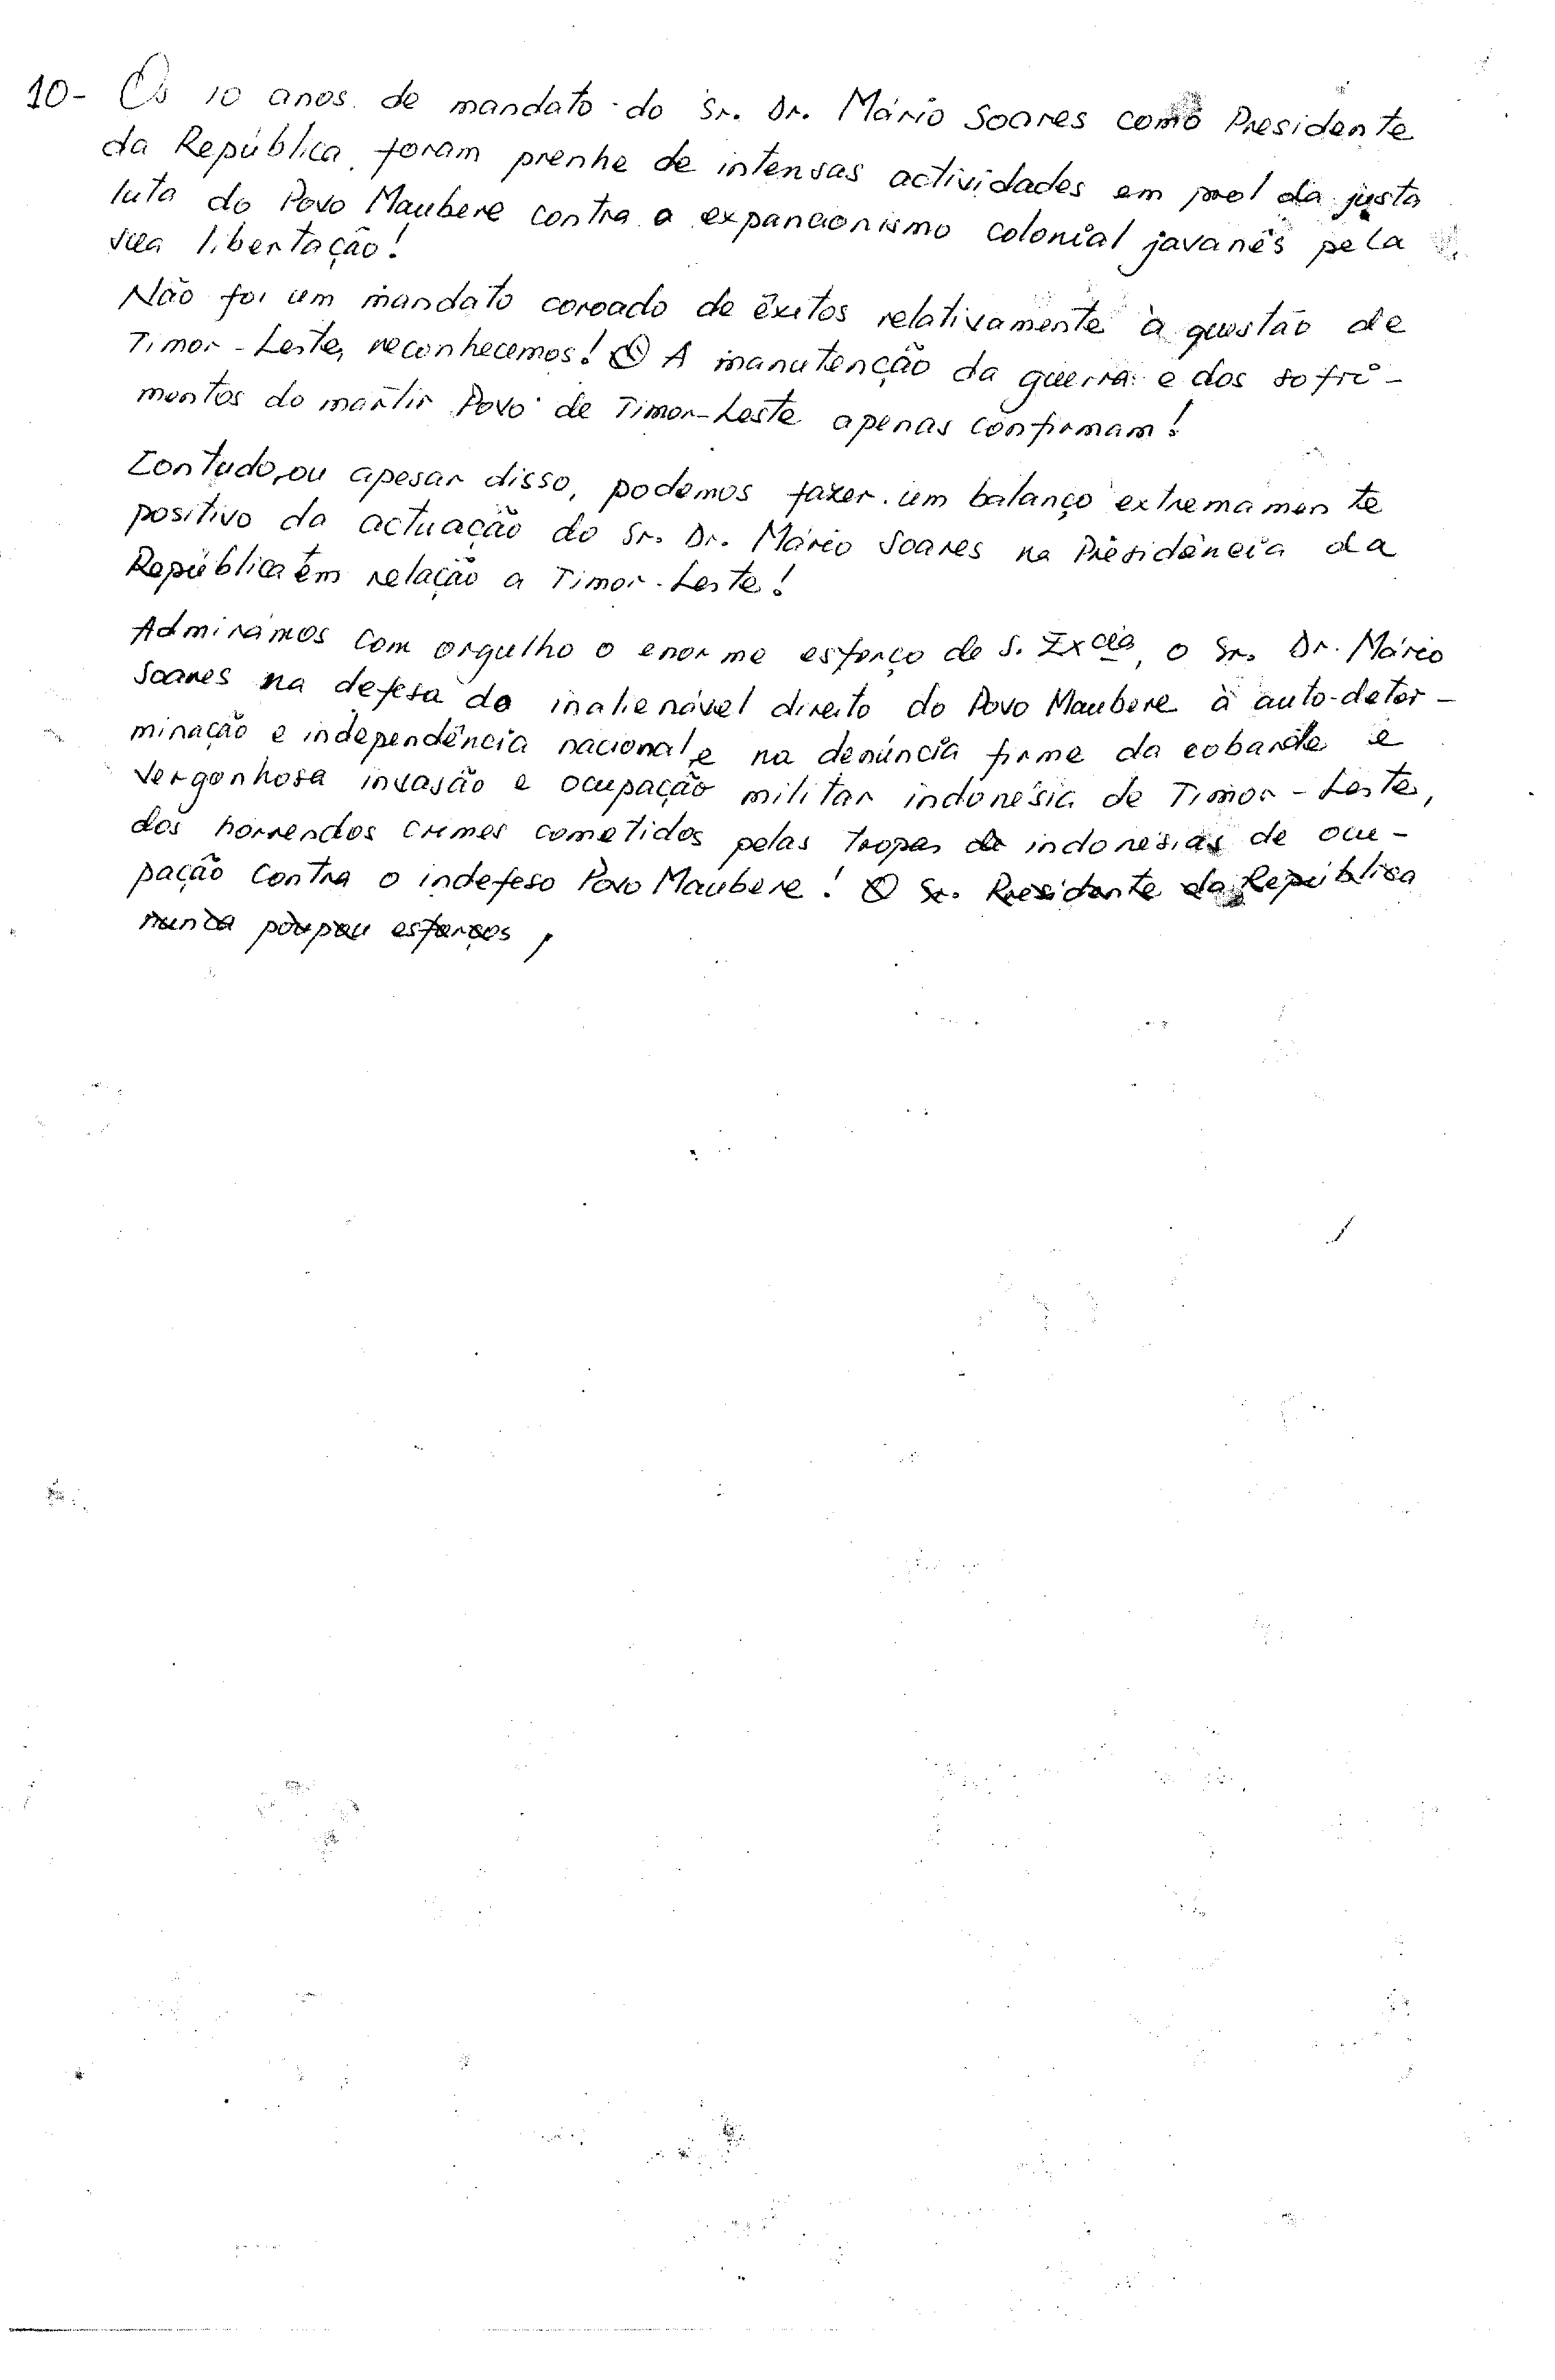 10- Os 10 anos de mandato do Sr. Dr. Mário Soares como Presidente
da República foram prenhe de intensas actividades em prol da justa
luta do Povo Maubere contra o expancionismo colonial javanês pela
sua libertação!
Não foi um mandato coroado de êxitos relativamente à questão de
Timor-Leste, reconhecemos! A manutenção da guerra e dos sofri-
mentos do mártir Povo de Timor-Leste apenas confirmam!
Contudo, ou apesar disso, podemos fazer um balanço extremamente
positivo da actuação do Sr. Dr. Mário Soares na Presidência da
República em relação a Timor-Leste!
Admirámos com orgulho o enorme esforço de S. Excia, o Sr. Dr. Mário
Soares na defesa do inalienável direito do Povo Maubere à auto-deter-
minação e independência nacional, e na denúncia firme da cobarde e
vergonhosa invasão e ocupação militar indonésia de Timor-Leste,
dos horrendos crimes cometidos pelas tropas indonésias de ocu-
pação contra o indefeso Povo Maubere! O Sr. Presidente da República
nunca poupou esforços,